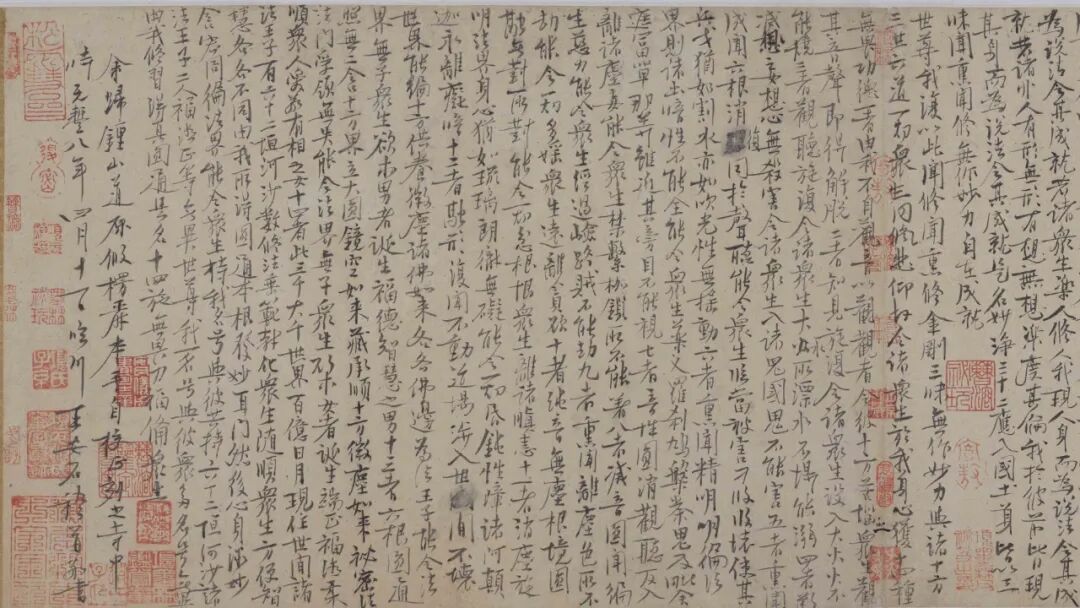 為說法令其成就若諸眾生樂人修人我現人身而為說法令其成
就若諸非人有形無形有想無想樂度其倫我於彼前皆現
其身而為說法令其成就是名妙淨三十二應入國土身皆以三
昧聞熏聞修無作妙力自在成就
世尊我復以此聞熏聞修金剛三昧無作妙力與諸十方
三世六道一切眾生同悲仰故令諸眾生於我身心獲十四種
無畏功德一者由我不自觀音以觀觀者令彼十方苦惱眾生觀
其音聲即得解脫二者知見旋復令諸眾生設入大火火不
能燒三者觀聽旋復令諸眾生大水所漂水不能溺四者斷
滅妄想心無殺害令諸眾生入諸鬼國鬼不能害五者熏聞
成聞六根消復同於聲聽能令眾生臨當被害刀段段壞使其
兵戈猶如割水亦如吹光性無搖動六者熏聞精明明遍法
界則諸幽暗性不能全能令眾生藥叉羅剎鳩槃荼鬼及毗舍
遮富單那等雖近其旁目不能視七者音性圓消觀聽返入
離諸塵妄能令眾生禁繫枷鎖所不能著八者滅音圓聞遍
生慈力能令眾生經過嶮路賊不能劫九者熏聞離塵色所不
劫能令一切多婬眾生遠離貪欲十者純音無塵根境圓
融無對所對能令一切忿恨眾生離諸瞋恚十一者消塵旋
明法界身心猶如琉璃朗徹無礙能令一切昏鈍性障諸阿顛
迦永離癡暗十二者融形復聞不動道場涉入世間不壞
世界能遍十方供養微塵諸佛如來各各佛邊為法王子能令法
界無子眾生欲求男者誕生福德智慧之男十三者六根圓通
照無二含十方界立大圓鏡空如來藏承順十方微塵如來祕密法
法門受領無失能令法界無子眾生欲求女者誕生端正福德柔
順眾人愛敬有相之女十四者此三千大千世界百億日月現住世間諸
法王子有六十二恒河沙數修法垂範教化眾生隨順眾生方便智
慧各各不同由我所得圓通本根發妙耳門然後身心微妙
含容周遍法界能令眾生持我名號與彼共持六十二恒河沙諸
法王子二人福德正等無異世尊我一名號與彼眾多名號無異
由我修習得真圓通是名十四施無畏力福備眾生
余歸鍾山道原假楞嚴本手自校正刻之寺中
時元豐八年四月十一日臨川王安石稽首敬書